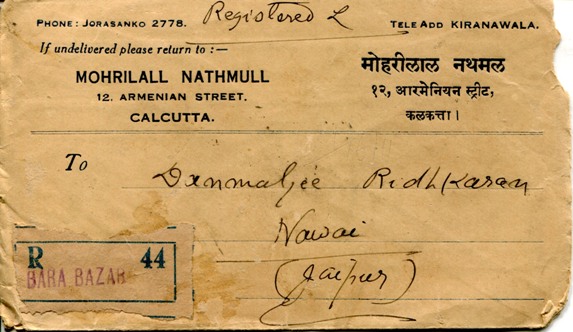 PHONE: JORASANKO 2778. Registered L TELE ADD KIRANAWALA.
If undelivered please return to :—
MOHRILALL NATHMULL
12. ARMENIAN STREET.
CALCUTTA.
मोहरीलाल नथमल
१२, आरमेनियन स्ट्रीट,
कलकत्ता।
To
Dunmaljee Ridhkaran
Nawai
(Jaipur)
R 44
BARA BAZAR